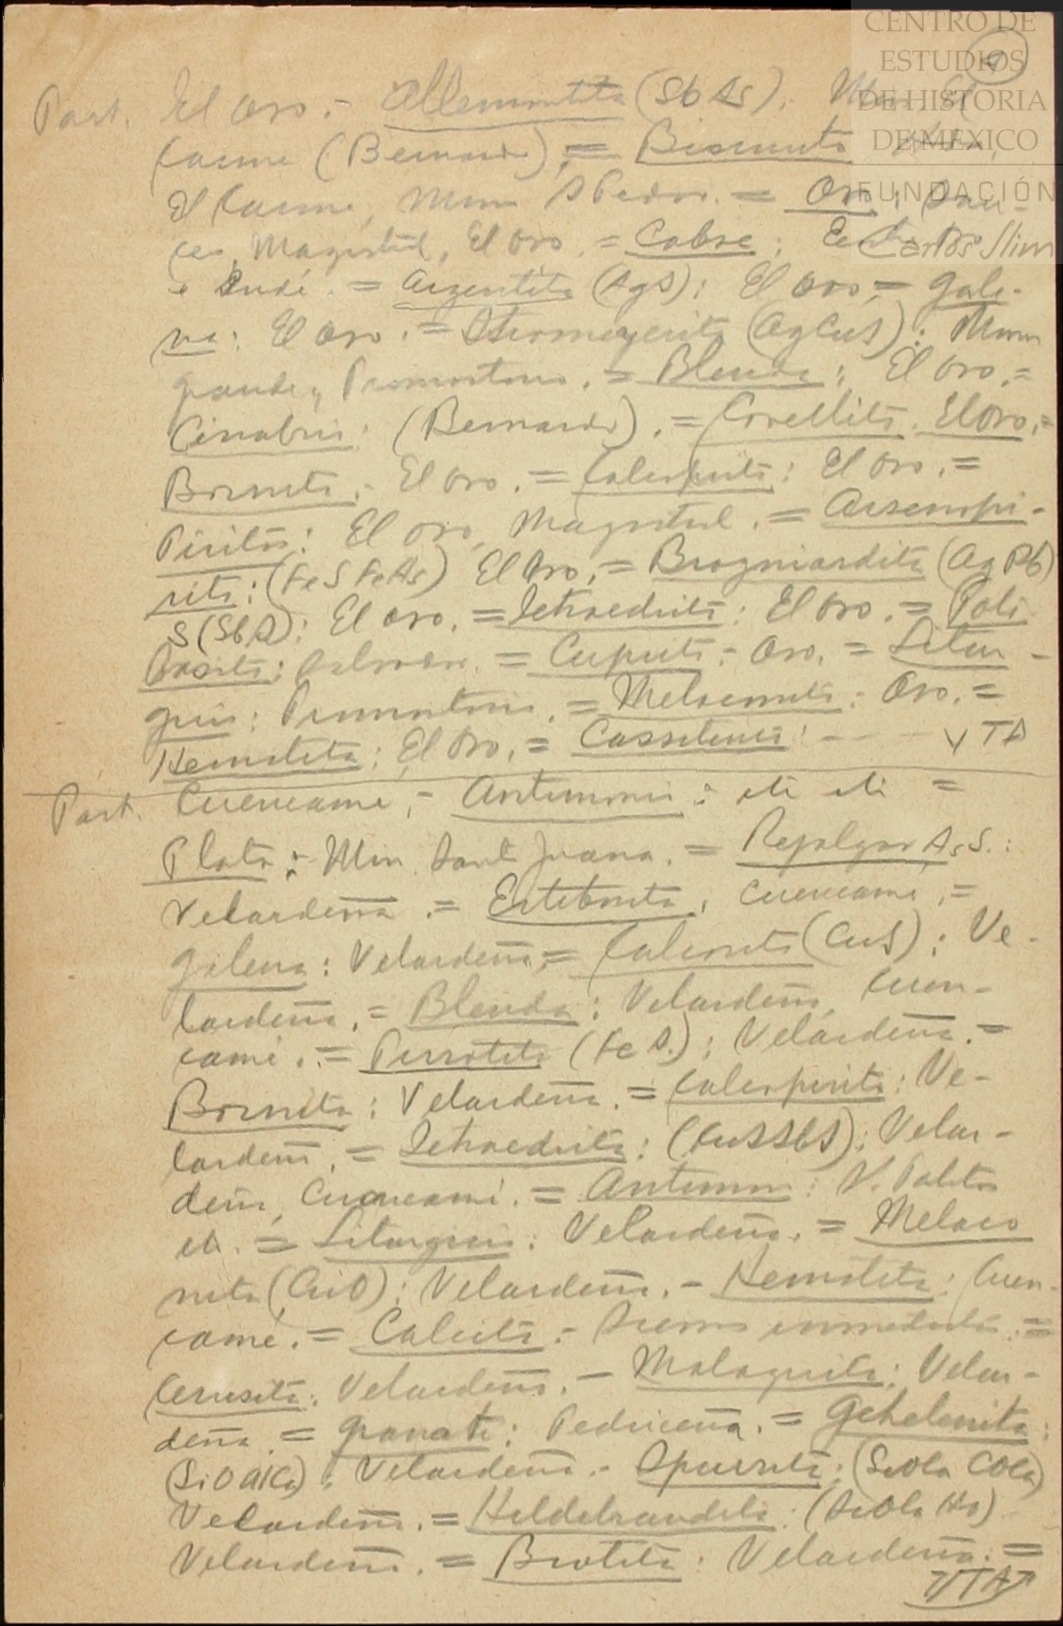 CENTRO DE
ESTUDIOS
DE HISTORIA
DE MEXICO
FUNDACIÓN
Carlos Slim
Part. El Oro. - Allemontita (Sb As).
Carmen (Bernardo), = Bismuto
El Carmen, Mina S Pedro. = Oro:
Magistral, El Oro. = Cobre:
e Indé. = Argentita (AgS): El Oro = Gale-
na: El Oro. = Stromeyerita (AgCuS): Mina
grande y Promontorio. = Blenda: El Oro. =
Cinabrio: (Bernardo). = Covellita. El Oro. =
Bornita. - El Oro. = Calcopirita: El Oro. =
Piritas: El Oro, Magistral. = Arsenopi-
rita: (FeS FeAs) El Oro. = Brogniardita (Ag Pb)
S (SbS): El Oro. = Tetraedrita: El Oro. = Poli
basita: = Cuprita - Oro. = Litar-
girio: Promontorio. = Melaconita: Oro. =
Hematita: El Oro. = Cassiterita: - VTA
Part. Cuencamé, - Antimonio: =
Plata: Min Santa Juana. = Rejalgar As S.:
Velardeña. = Estibnita, Cuencamé, =
Galena: Velardeña, = Calcosita (CuS): Ve-
lardeña, = Blenda: Velardeña, Cuen-
camé. = Pirrotita (Fe S.): Velardeña. =
Bornita: Velardeña. = Calcopirita: Ve-
lardeña, = Tetraedrita: (CuSSbS): Velar-
deña, Cuencamé. = Antimon:
= Litargirio: Velardeña. = Melaco
nita (CuO): Velardeña. - Hematita: Cuen-
camé. = Calcita. - inmediata. =
Cerusita: Velardeña. - Malaquita: Velar-
deña. = Granate: Pedriceña. = Gehelenita:
(SiO AlCa): Velardeña. - Spurrita: (SiOCa COCa)
Velardeña. = Hildebrandita: (SiOCa Ho)
Velardeña. = Biotita: Velardeña. =
VTA